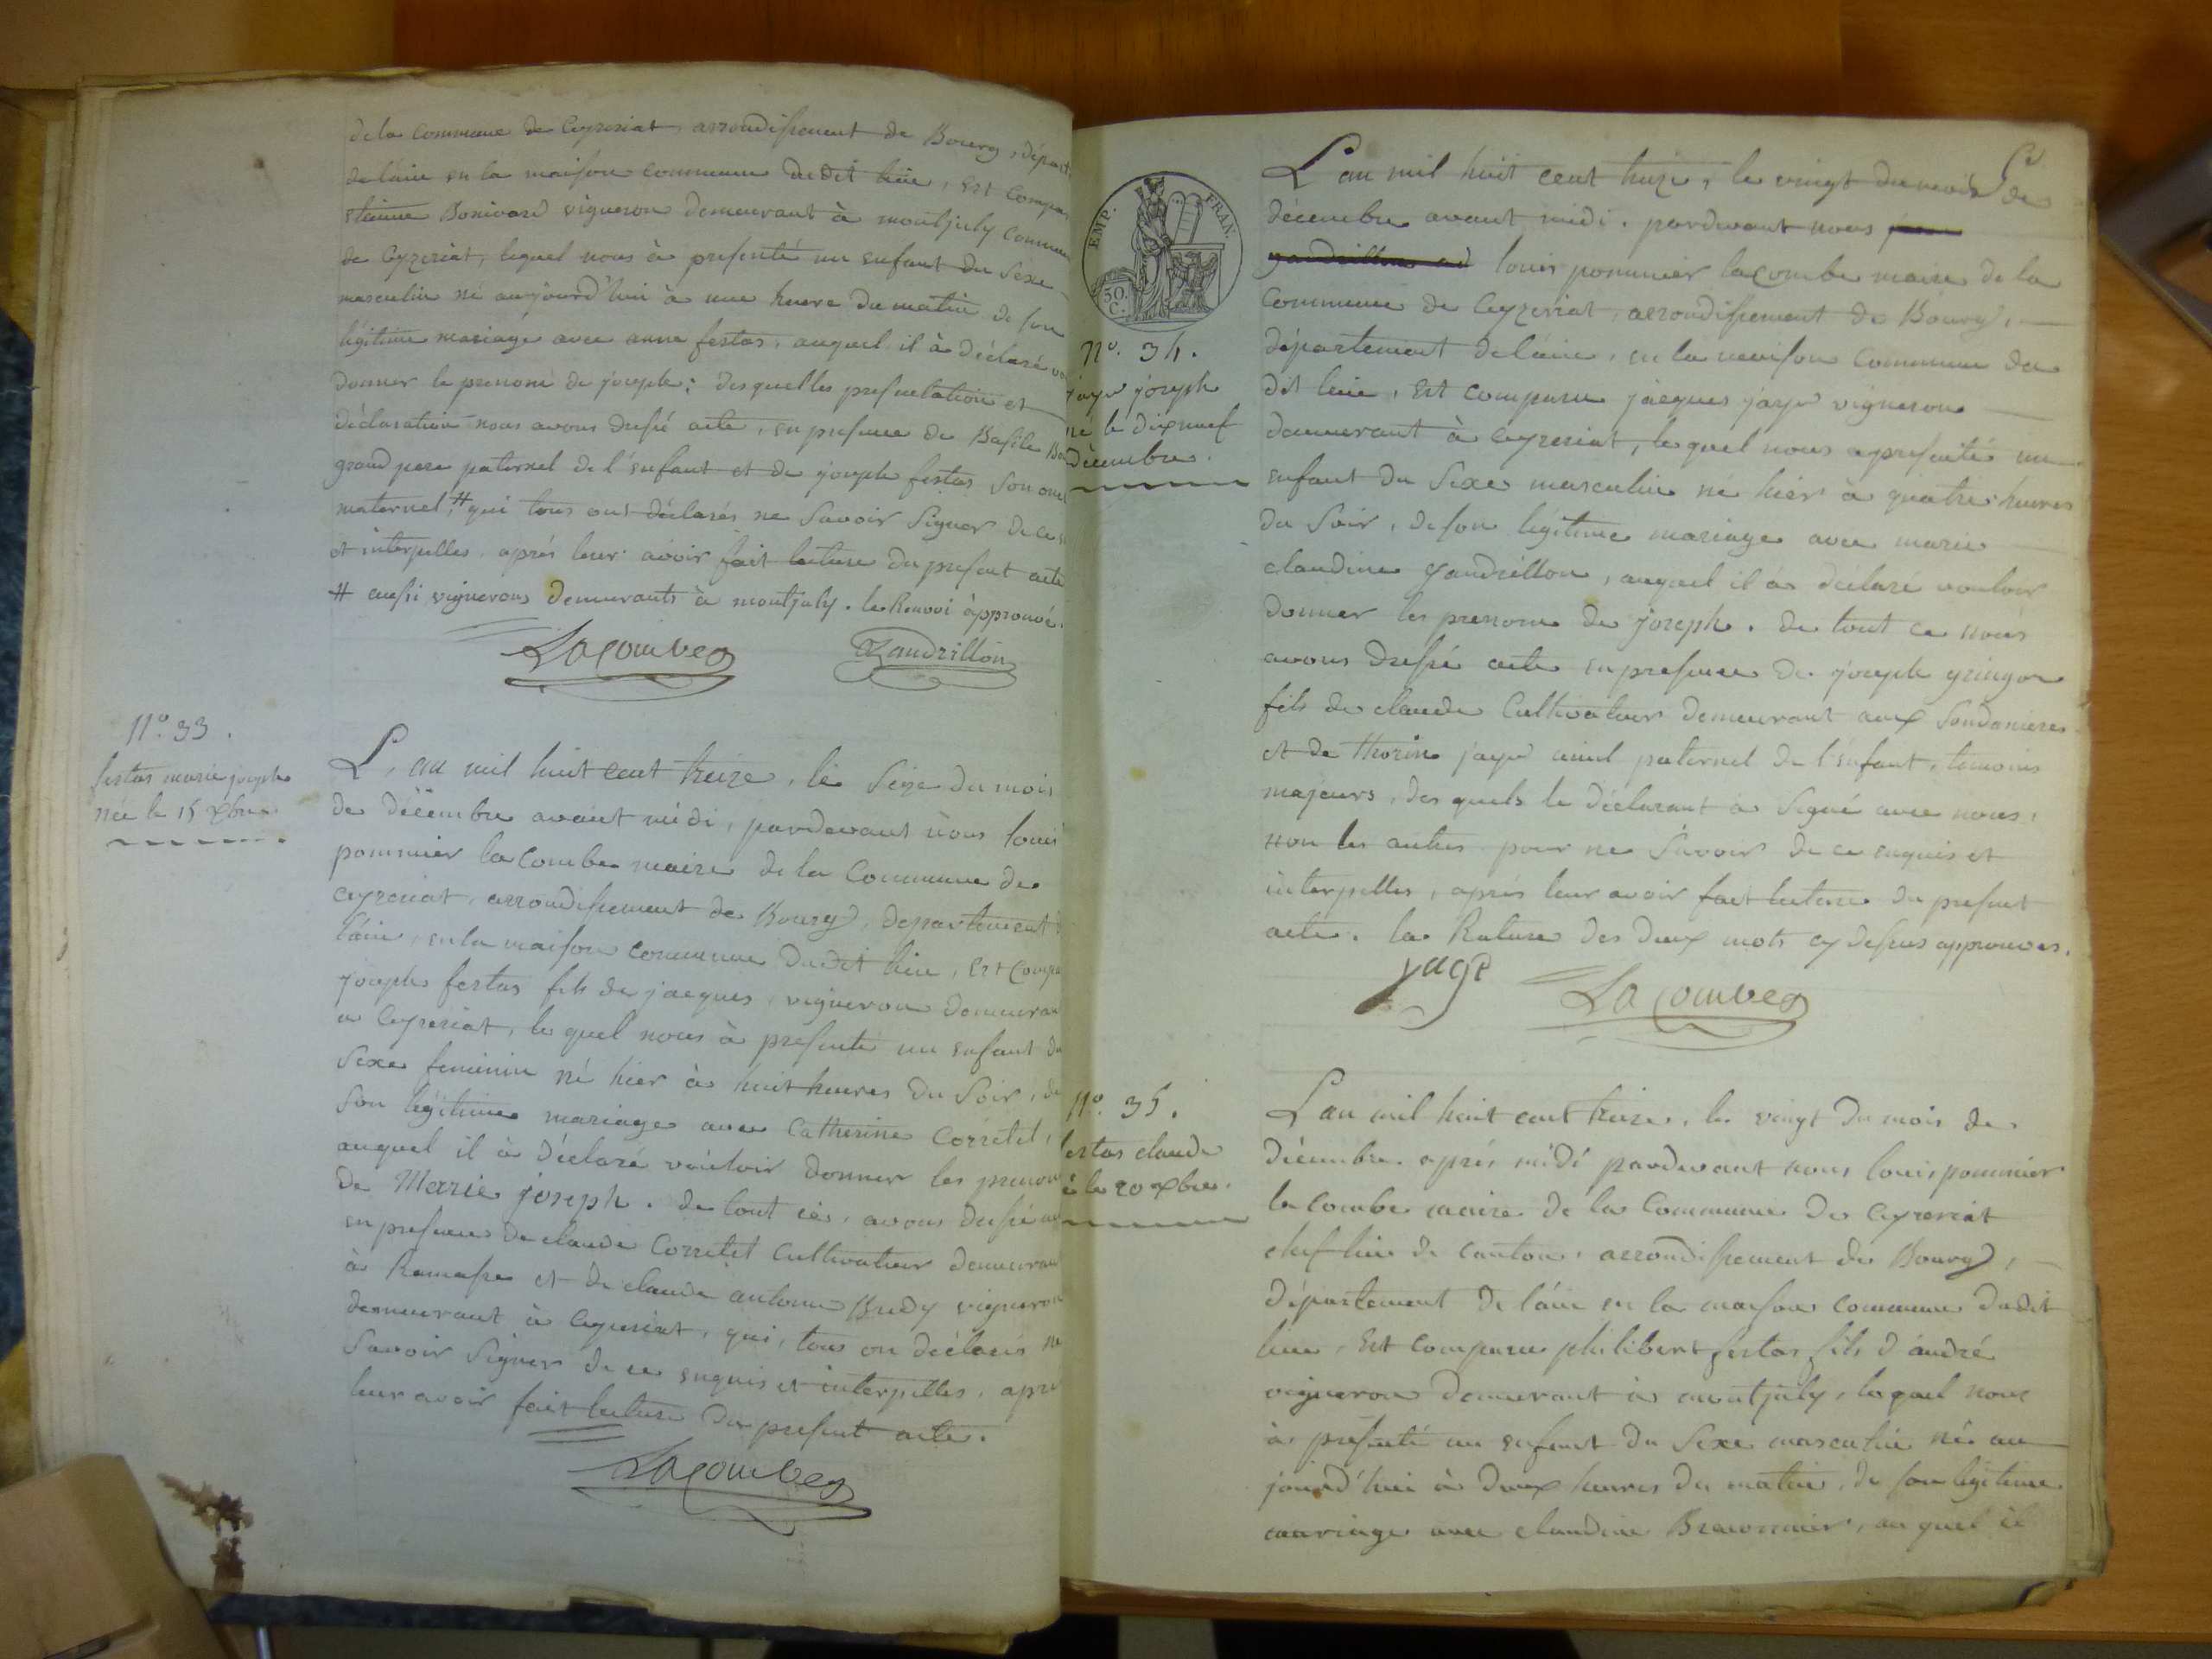 de la commune de Ceyzeriat arrondissement de Bourg, départ
de l'ain en la maison commune du dit lieu, Est compa
Etienne Bonivard vigneron demeurant à montjuly commune
de Ceyzeriat, lequel nous à présenté un enfant du Sexe
masculin né aujourd'hui à une heure du matin de son
légitime mariage avec anne festas, auquel il à déclaré vo
donner le prenom de joseph; desquelles presentation et
déclaration nous avons dressé acte, en presence de Basile Bo
grand pere paternel de l'enfant et de joseph festas son oncl
maternel, # qui tous ont déclarés ne Savoir Signer de ce
et interpelles, aprés leur avoir fait lecture du present acte
# aussi vignerons demeurants à montjuly. le Renvoi approuvé.
Lacombe Gandrillon
N.º 33.
festas marie joseph
née le 15 Xbre
L'an mil huit cent treize, le Seize du mois
de décembre avant midi, pardevant nous louis
pommier lacombe maire de la Commune de
ceyzeriat, arrondissement de Bourg, departement d
l'ain, en la maison commune du dit lieu, Est compa
joseph festas fils de jacques, vigneron demeuran
a Ceyzeriat, le quel nous à présenté un enfant du
Sexe feminin né hier à huit heures du Soir, de
Son légitime mariage avec Catherine Corretel,
auquel il à déclaré vouloir donner les prenom
de Marie joseph. de tout ce, avons dressé
en presence de claude Corretel Cultivateur demeurant
à Ramasse et de claude antoine Bredy vigneron
demeurant à Ceyzeriat, qui, tous on déclarés ne
Savoir Signer de ce enquis et interpelles, apre
leur avoir fait lecture du present acte.
Lacombe
EMP. FRAN.
50. C.
N.º 34.
jaye joseph
né le dixneuf
décembre.
L'an mil huit cent treize, le vingt du mois de
décembre avant midi. pardevant nous
louis pommier lacombe maire de la
Commune de Ceyzeriat, arrondissement de Bourg,
département de l'ain, en la maison commune du
dit lieu, Est comparu jacques jaye vigneron
demeurant à Ceyzeriat, le quel nous a presenté un
enfant du Sexe masculin né hier à quatre heures
du Soir, de son légitime mariage avec marie
claudine Gandrillon, auquel il à déclaré vouloir
donner les prenom de joseph. de tout ce nous
avons dressé acte en presence de joseph gringoz
fils de claude Cultivateur demeurant aux Soudanieres
et de Thorin jaye aieul paternel de l'enfant, temoins
majeurs, des quels le déclarant à Signé avec nous,
non les autres pour ne Savoir de ce enquis et
interpelles, aprés leur avoir fait lecture du present
acte. la Rature des deux mots cy dessus approuvés.
jaye Lacombe
N.º 35.
estas claude
é le 20 Xbre.
L'an mil huit cent treize, le vingt du mois de
décembre aprés midi pardevant nous louis pommier
lacombe maire de la Commune de Ceyzeriat
chef lieu de canton, arrondissement de Bourg,
département de l'ain en la maison commune dudit
lieu, Est comparu philibert festas fils d'andré
vigneron demeurant à montjuly, lequel nous
à presenté un enfant du Sexe masculin né au
jourd'hui à deux heures du matin, de son légitime
mariage avec claudine, au quel il